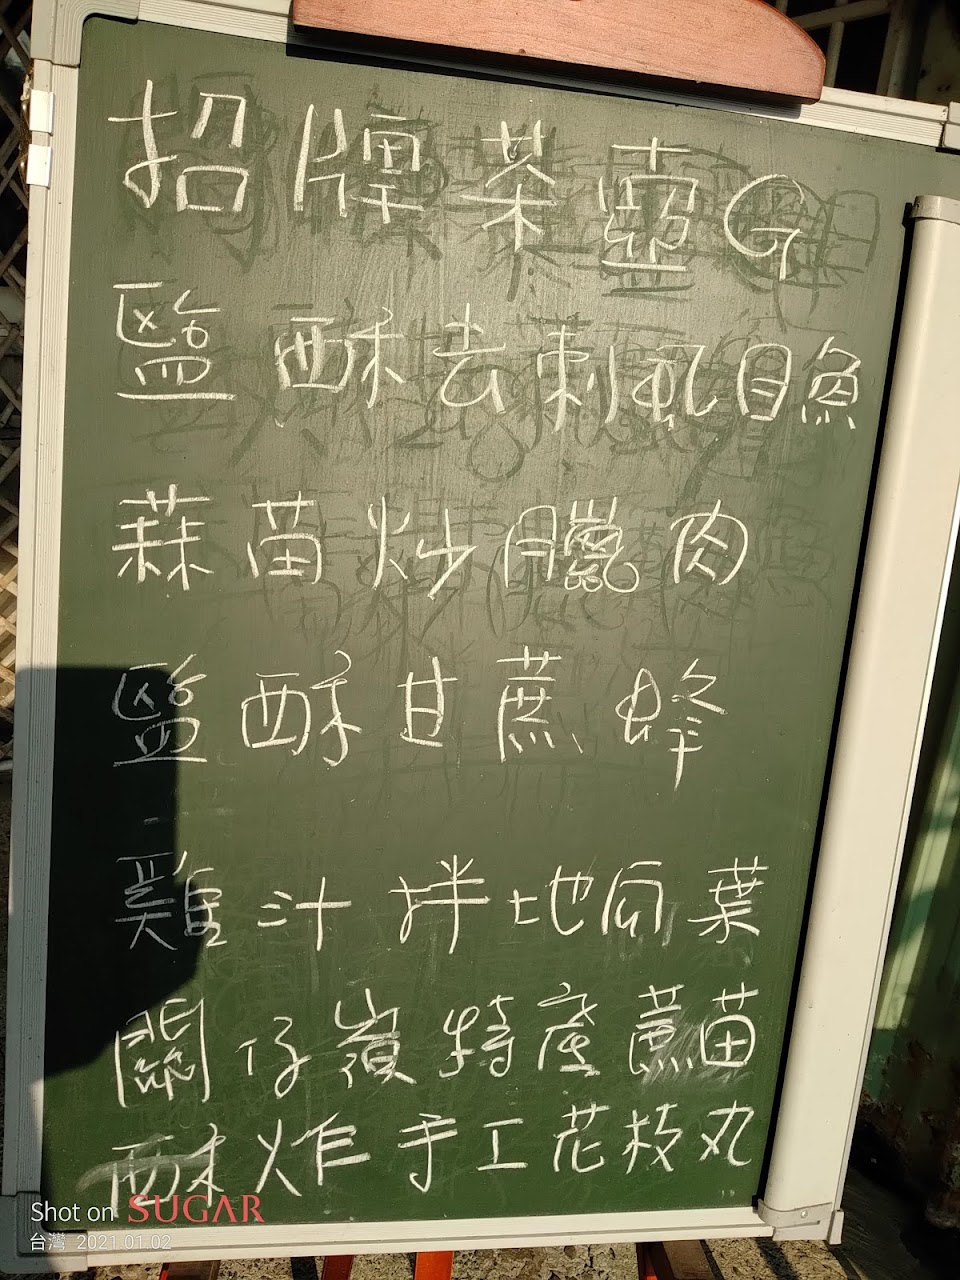 招牌茶壺G
鹽酥去刺風目魚
蒜苗炒臘肉
鹽酥甘蔗蜂
雞汁拌地瓜葉
關仔嶺特產蔗苗
酥炸手工花枝丸
Shot on SUGAR
台灣 2021 01.02